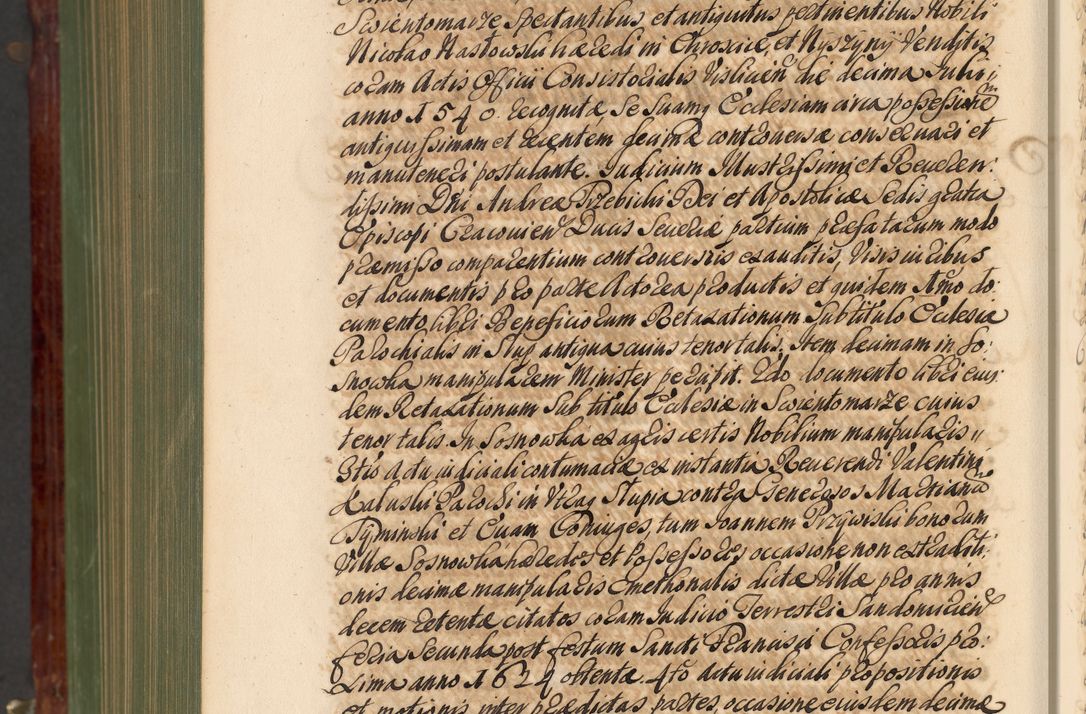 Swientomarze spectantibus et antiquitus pertinentibus Nobili
Nicolao Nastowski hæredi in Chroscice, et Nyszynÿ Venditis
coram Actis Officii Consistorialis Vislicien die decima Julii
anno 1540. recognitæ se suamq Ecclesiam circa possessionem
antiquissimam et recentem decimæ controversæ conservari et
manuteneri postulante. Judicium Illustrissimi et Reveren:
dissimi Dni Andreæ Trzebicki Dei et Apostolicæ Sedis gratia
Episcopi Cracovien Ducis Severiæ partium præfatarum modo
præmisso comparentium controversiis exauditis, Visis iuribus
et documentis pro parte Actorea productis et quidem 1mo do:
cumento libri Beneficiorum Retaxationum Sub titulo Ecclesiæ
Parochialis in Slup antiqua cuius tenor talis. Item decimam in So:
snowka manipularem Minister percipit. 2do documento libri eius
dem Retaxationum Sub titulo Ecclesiæ in Swientomarze cuius
tenor talis. In Sosnowka ex agris certis Nobilium manipularis
3tio Actu iudiciali contumaciæ ex instantia Reverendi Valentini
Kaluski Parochi in Utraq Slupia contra Generosos Marrianū
Tÿminski et Evam Coniuges, tum Joannem Przÿwiski bonorum
Villæ Sosnowka hæredes et Possessores occasione non extraditi
onis decimæ manipularis Cmethonalis dictæ Villæ pro annis
decem retentæ citatos coram Judicio Terrestri Sandomirien
feria Secunda post festum Sancti Francisci Confessoris pro:
xima anno 1624 obtentæ. 4to Actu iudiciali propositionis
et motionis inter prædictas partes, occasione eiusdem decimæ